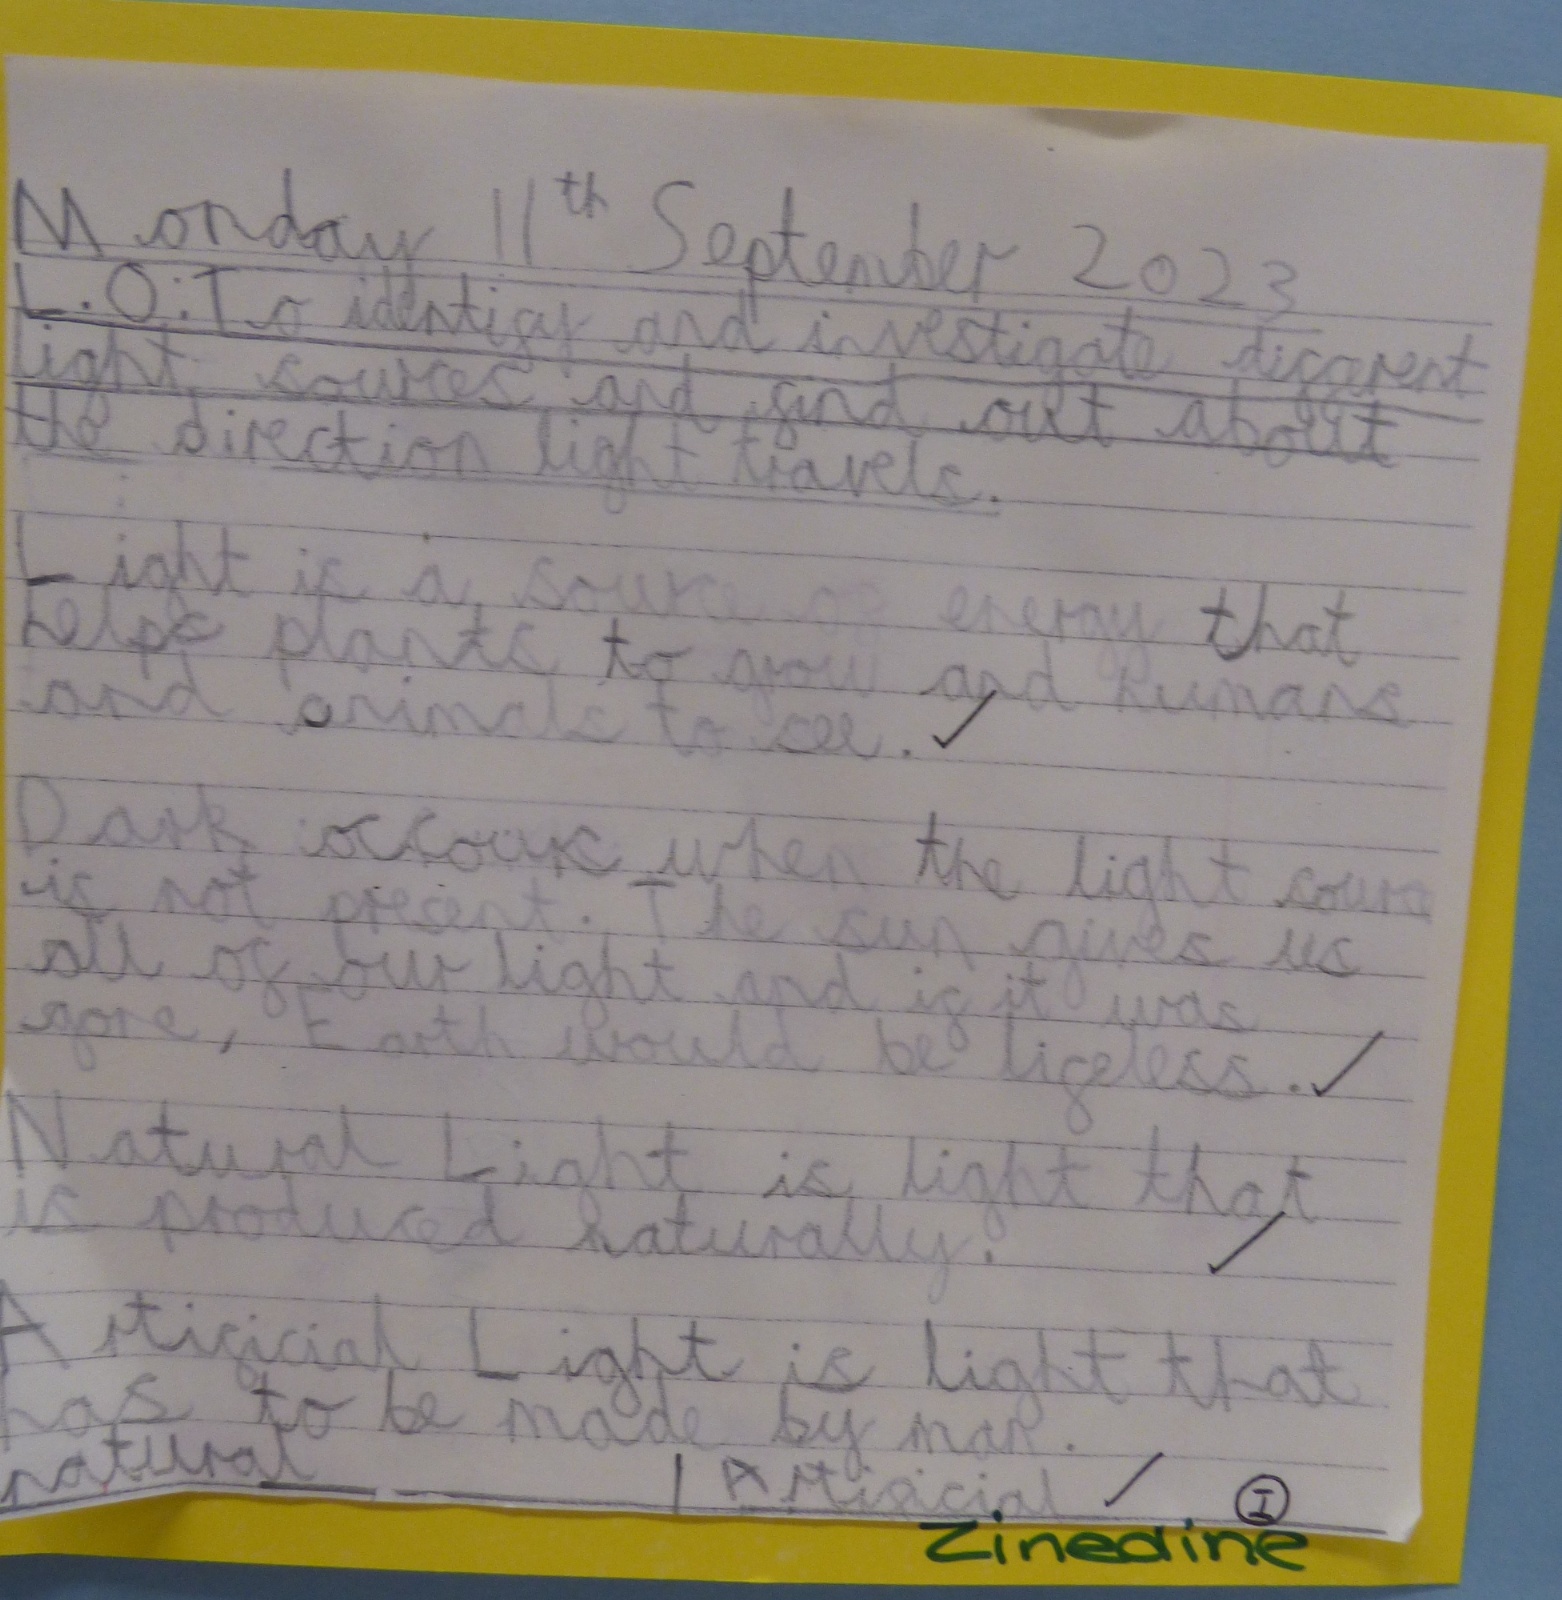 Monday 11th September 2023
L.O:To identify and investigate different
light sources and find out about
the direction light travels.
Light is a source of energy that
helps plants to grow and humans
and animals to see.
Dark occours when the light source
is not present. The sun gives us
all of our light and if it was
gone, Earth would be lifeless.
Natural Light is light that
is produced naturally.
Artificial Light is light that
has to be made by man.
natural | Artificial
I
Zinedine